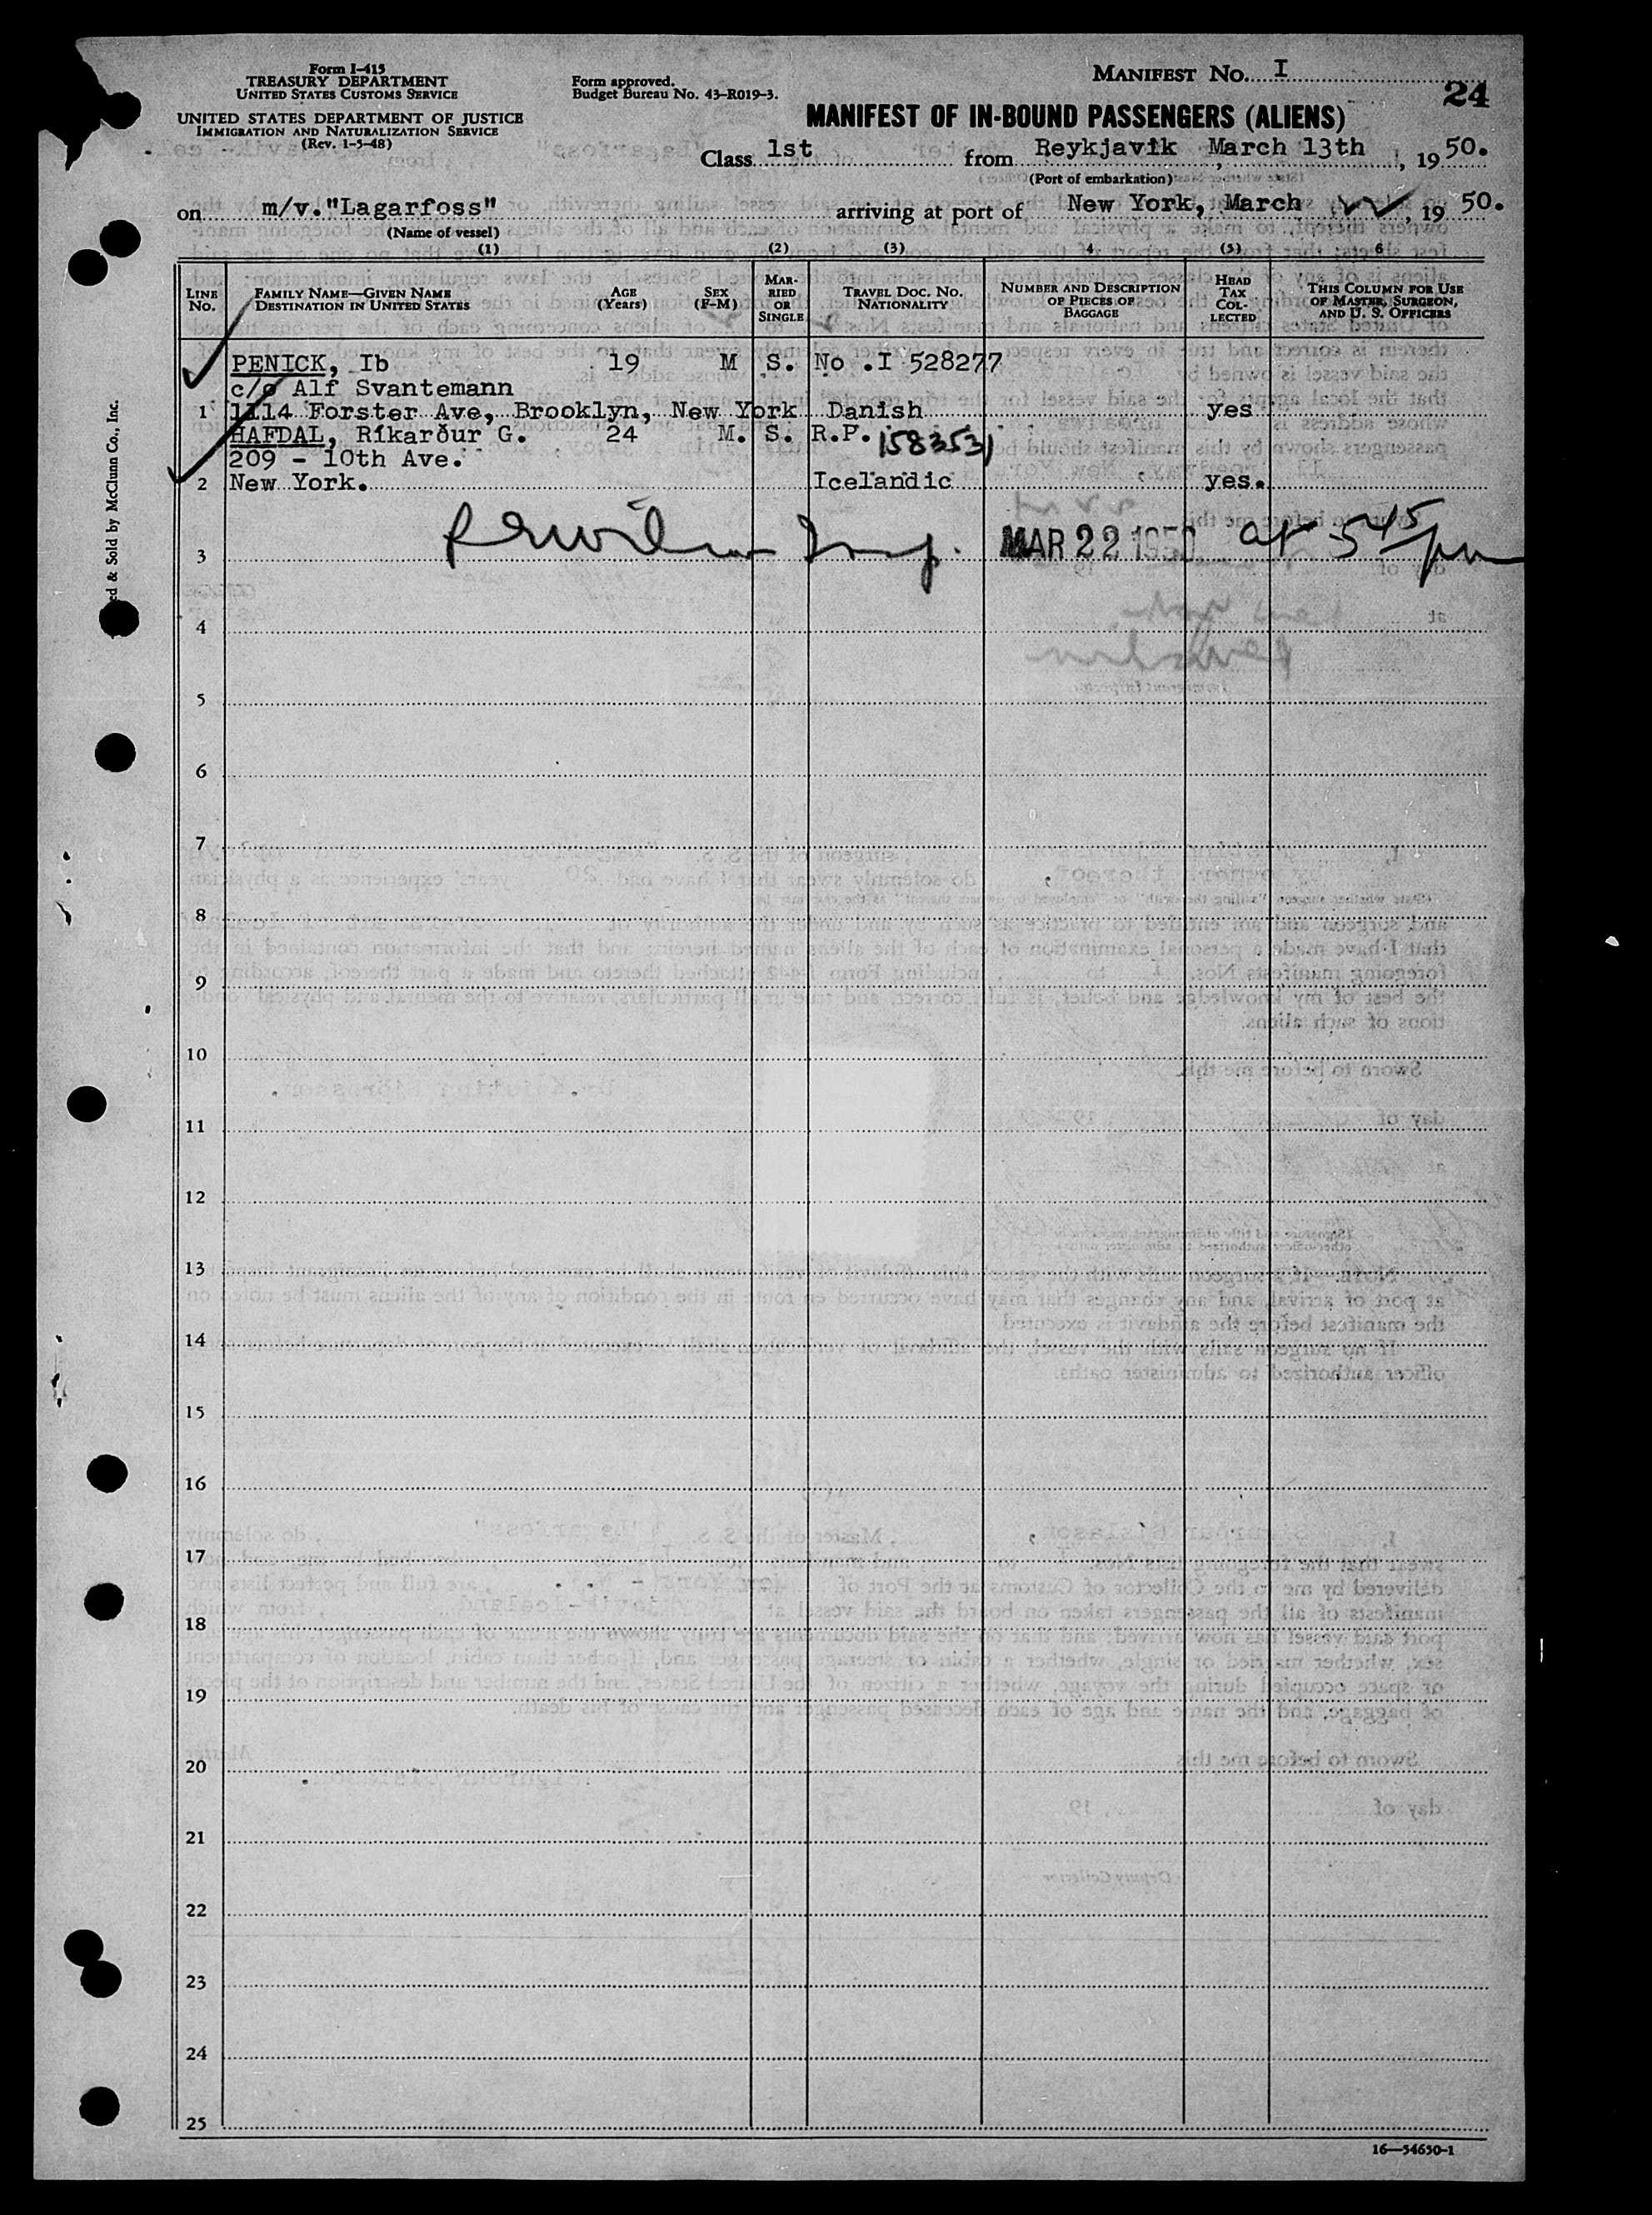 Form I-415
TREASURY DEPARTMENT
UNITED STATES CUSTOMS SERVICE
UNITED STATES DEPARTMENT OF JUSTICE
IMMIGRATION AND NATURALIZATION SERVICE
(Rev. 1-5-48)
Form approved.
Budget Bureau No. 43-R019-3.
MANIFEST NO. I
24
MANIFEST OF IN-BOUND PASSENGERS (ALIENS)
Class 1st from Reykjavik, March 13th, 1950.
(Port of embarkation)
on m/v."Lagarfoss" arriving at port of New York, March 22, 1950.
(Name of vessel)
(1) (2) (3) 4 (5) 6
LINE NO. FAMILY NAME—GIVEN NAME DESTINATION IN UNITED STATES AGE (Years) SEX (F-M) MARRIED OR SINGLE TRAVEL DOC. NO. NATIONALITY NUMBER AND DESCRIPTION OF PIECES OF BAGGAGE HEAD TAX COLLECTED THIS COLUMN FOR USE OF MASTER, SURGEON, AND U. S. OFFICERS
PENICK, Ib 19 M S. No .I 528277
c/o Alf Svantemann
1 1114 Forster Ave, Brooklyn, New York Danish yes
HAFDAL, Ríkarður G. 24 M. S. R.P. 1583531
209 - 10th Ave.
2 New York. Icelandic yes.
3 Insp. MAR 22 1950 at 5 45 pm
4
5
6
7
8
9
10
11
12
13
14
15
16
17
18
19
20
21
22
23
24
25
16—54650-1
ed & Sold by McClunn Co., Inc.